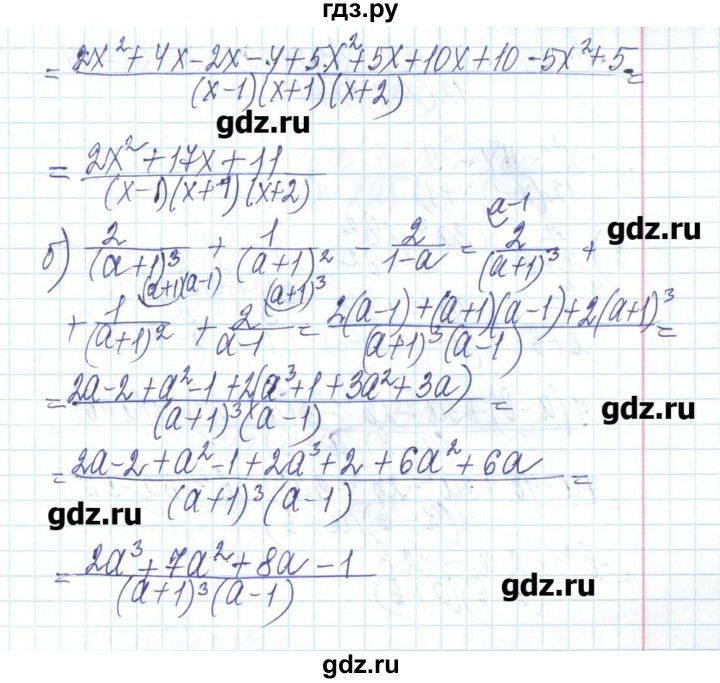 гдз.ру
= (2x² + 4x - 2x - 4 + 5x² + 5x + 10x + 10 - 5x² + 5) / ((x-1)(x+1)(x+2)) =
gdz.ru
= (2x² + 17x + 11) / ((x-1)(x+1)(x+2))
gdz.ru
б) 2/(a+1)³ + 1/(a+1)² - 2/(1-a) = 2^(a-1)/(a+1)³ +
+ 1^((a+1)(a-1))/(a+1)² + 2^((a+1)³)/(a-1) = (2(a-1) + (a+1)(a-1) + 2(a+1)³) / ((a+1)³(a-1)) =
= (2a - 2 + a² - 1 + 2(a³ + 1 + 3a² + 3a)) / ((a+1)³(a-1)) =
gdz.ru
= (2a - 2 + a² - 1 + 2a³ + 2 + 6a² + 6a) / ((a+1)³(a-1)) =
gdz.ru
= (2a³ + 7a² + 8a - 1) / ((a+1)³(a-1))
gdz.ru
gdz.ru